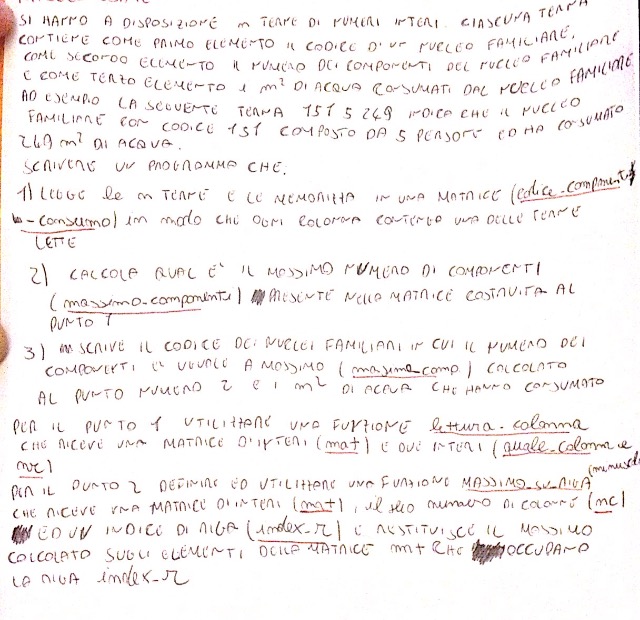 SI HANNO A DISPOSIZIONE m TERNE DI NUMERI INTERI. CIASCUNA TERNA
CONTIENE COME PRIMO ELEMENTO IL CODICE D'UN NUCLEO FAMILIARE,
COME SECONDO ELEMENTO IL NUMERO DEI COMPONENTI DEL NUCLEO FAMILIARE
E COME TERZO ELEMENTO I m² DI ACQUA CONSUMATI DAL NUCLEO FAMILIARE
AD ESEMPIO LA SEGUENTE TERNA 151 5 249 INDICA CHE IL NUCLEO
FAMILIARE CON CODICE 151 COMPOSTO DA 5 PERSONE ED HA CONSUMATO
249 m² DI ACQUA.
SCRIVERE UN PROGRAMMA CHE.
1) LEGGE le m TERNE E LE MEMORIZZA IN UNA MATRICE (codice-componenti
-consumo) in modo CHE OGNI COLONNA CONTENGA UNA DELLE TERNE
LETTE
2) CALCOLA QUAL E' IL MASSIMO NUMERO DI COMPONENTI
(massimo-componenti) PRESENTE NELLA MATRICE COSTRUITA AL
PUNTO 1
3) SCRIVE IL CODICE DEI NUCLEI FAMILIARI IN CUI IL NUMERO DEI
COMPONENTI E' UGUALE A MASSIMO (massimo-comp) CALCOLATO
AL PUNTO NUMERO 2 E I m² DI ACQUA CHE HANNO CONSUMATO
PER IL PUNTO 1 UTILIZZARE UNA FUNZIONE lettura-colonna
CHE RICEVE UNA MATRICE D'INTERI (mat) E DUE INTERI (quale-colonna e
nc)
PER IL PUNTO 2 DEFINIRE ED UTILIZZARE UNA FUNZIONE MASSIMO-SU-RIGA (minuscolo)
CHE RICEVE UNA MATRICE DI INTERI (mat), il suo numero DI COLONNE (mc)
ED UN INDICE DI RIGA (index-r) E RESTITUISCE IL MASSIMO
CALCOLATO SUGLI ELEMENTI DELLA MATRICE mat CHE OCCUPANO
LA RIGA index-r